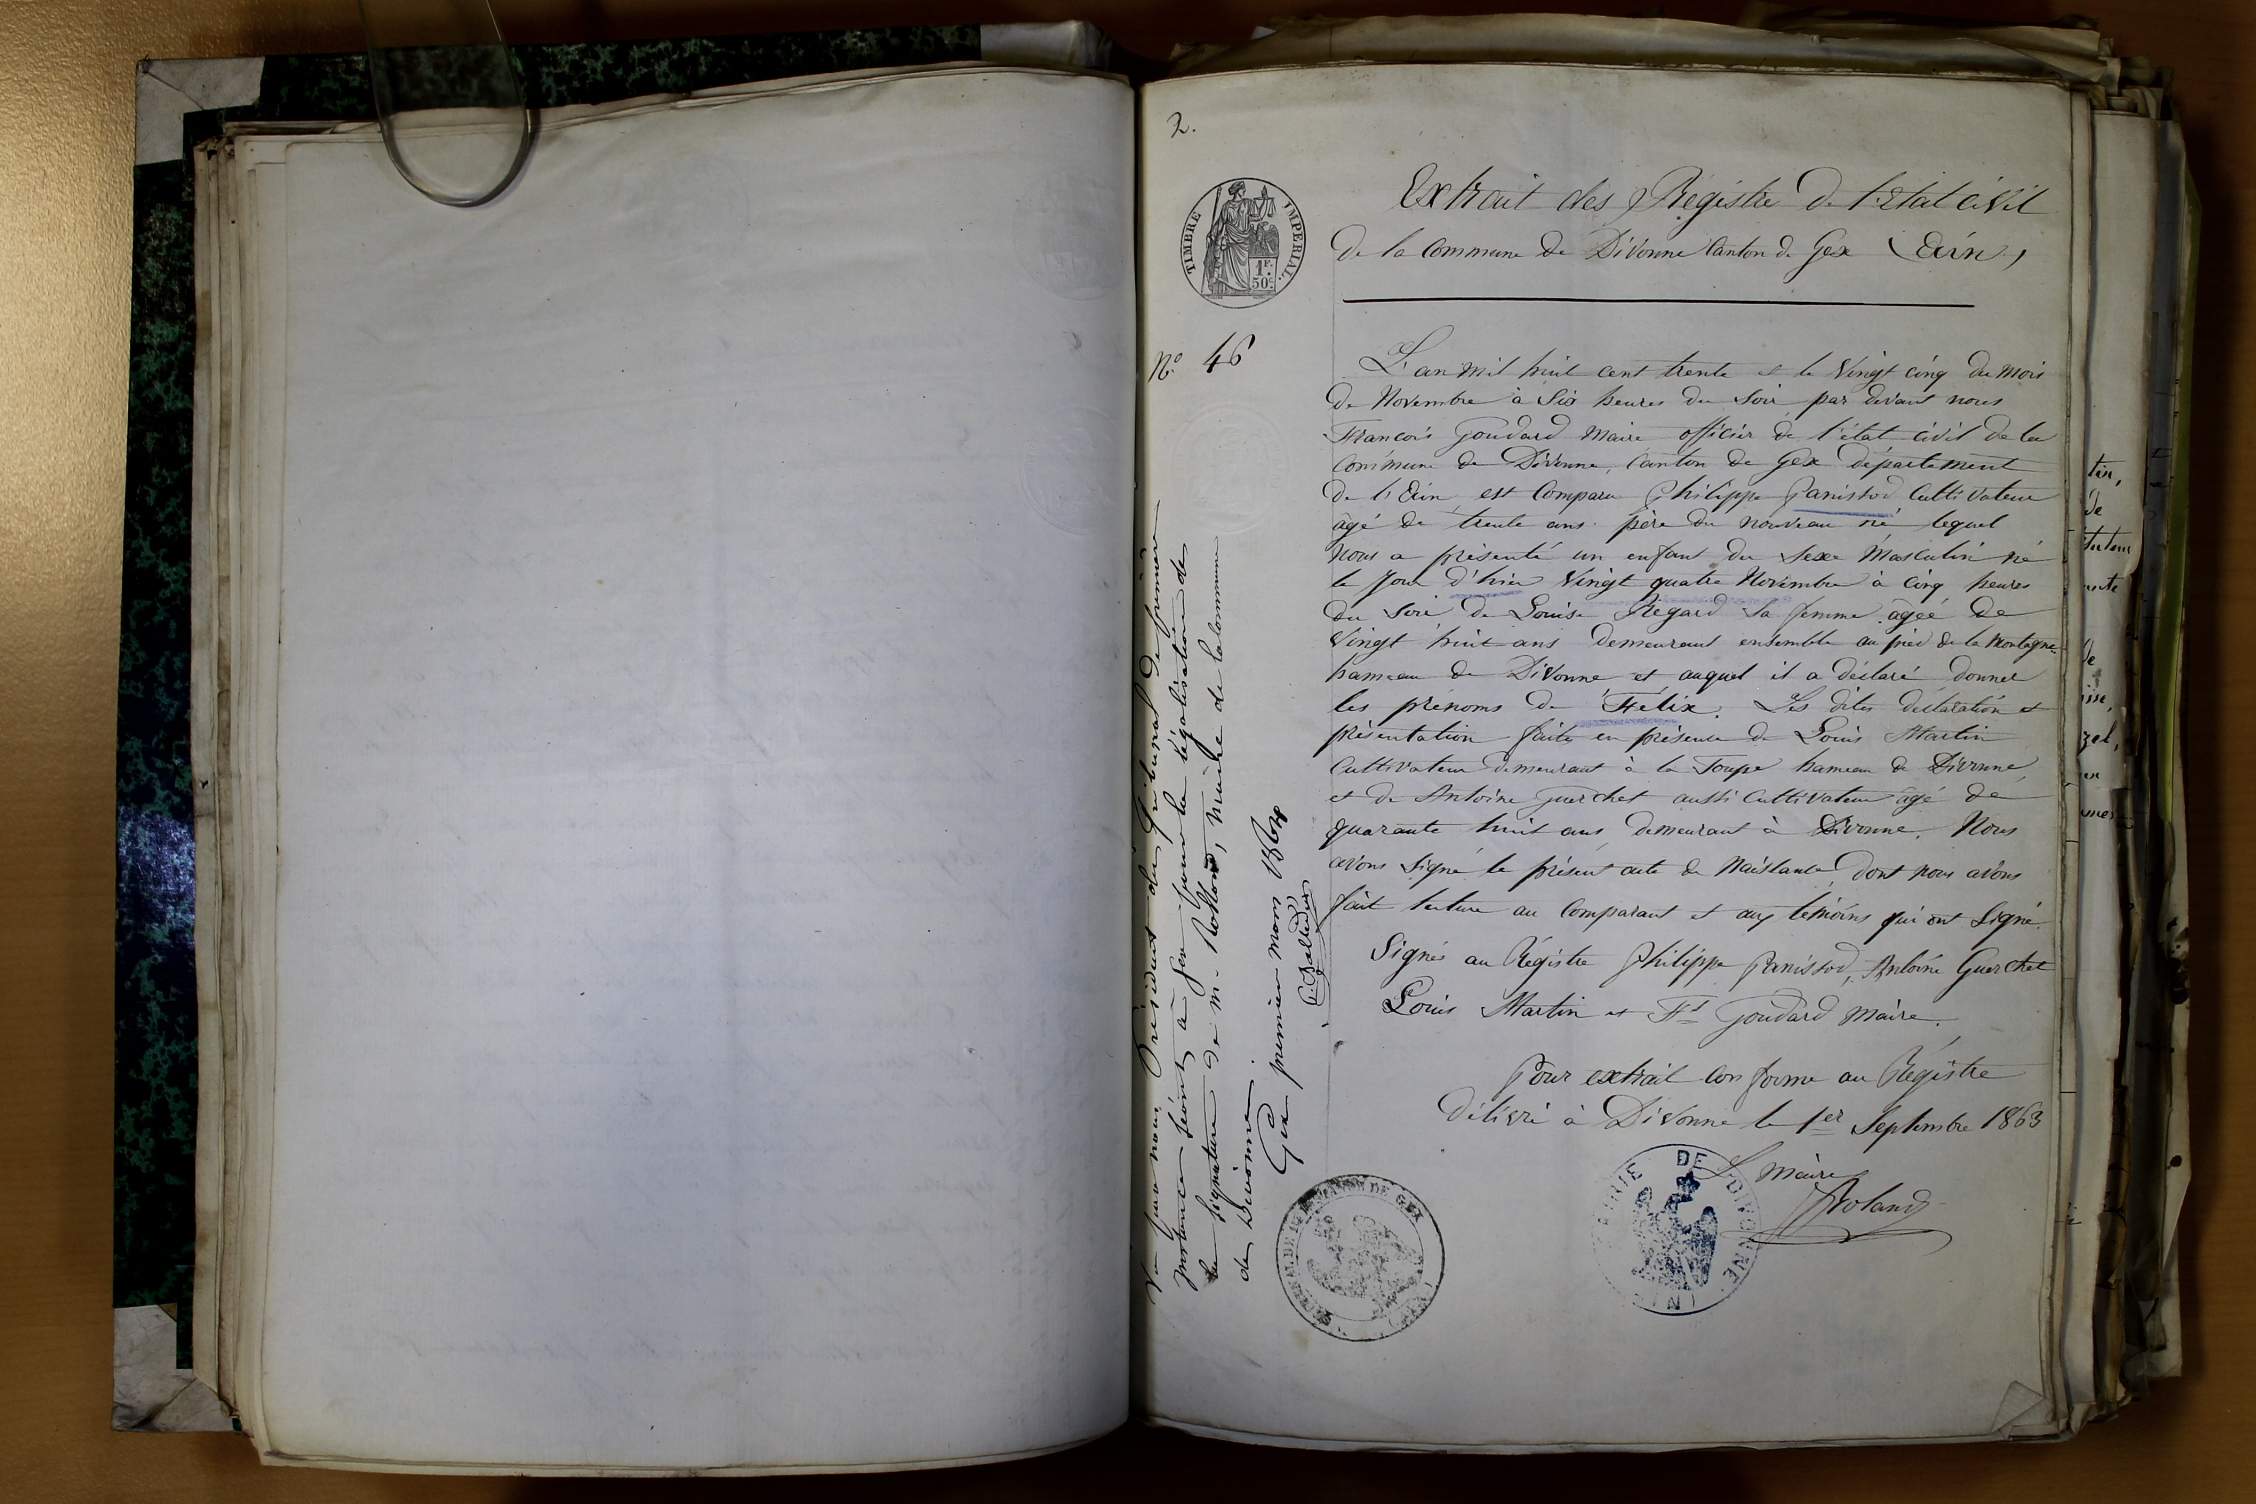 2.
TIMBRE IMPERIAL.
1F.
50c.
Extrait des Régistre De l'Etat civil
De la Commune de Divonne Canton de Gex (Ain)
No. 46
L'an mil huit cent trente et le vingt cinq du mois
De Novembre à Six heures du Soir par devant nous
François Goudard Maire officier de l'état civil de la
Commune de Divonne, Canton de Gex département
De l'Ain, est Comparu Philippe Panissod Cultivateur
âgé de trente ans père du nouveau né lequel
Nous a présenté un enfant du Sexe Masculin né
le Jour d'hier Vingt quatre Novembre à Cinq heures
du Soir de Louise Regard sa femme agée de
Vingt huit ans Demeurant ensemble au pied de la Montagne
hameau de Divonne et auquel il a déclaré donner
les prénoms de Félix. Les dites déclaration et
présentation faite en présence de Louis Martin
Cultivateur demeurant à la Toupe hameau de Divonne,
et de Antoine Guerchet aussi Cultivateur âgé de
quarante huit ans, demeurant à Divonne. Nous
avons Signé le présent acte de Naissance dont nous avons
fait lecture au Comparant et aux témoins qui ont Signé.
Signés au Régistre Philippe Panissod, Antoine Guerchet
Louis Martin et Fs Goudard Maire.
Pour extrait conforme au Régistre
Délivré à Divonne le 1er Septembre 1863
Le Maire
Roland
MAIRIE DE DIVONNE (AIN)
Vu par nous, Président du Tribunal de première
instance séant à Gex pour la légalisation de
la signature de Mr. Rolland, maire de la Commune
de Divonne.
Gex premier mars 1864
TRIBUNAL DE 1re INSTANCE DE GEX
tin,
de
de
zel,